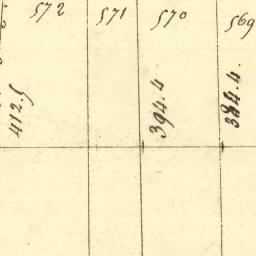 572 571 570 569
412.5 394.4 384.4